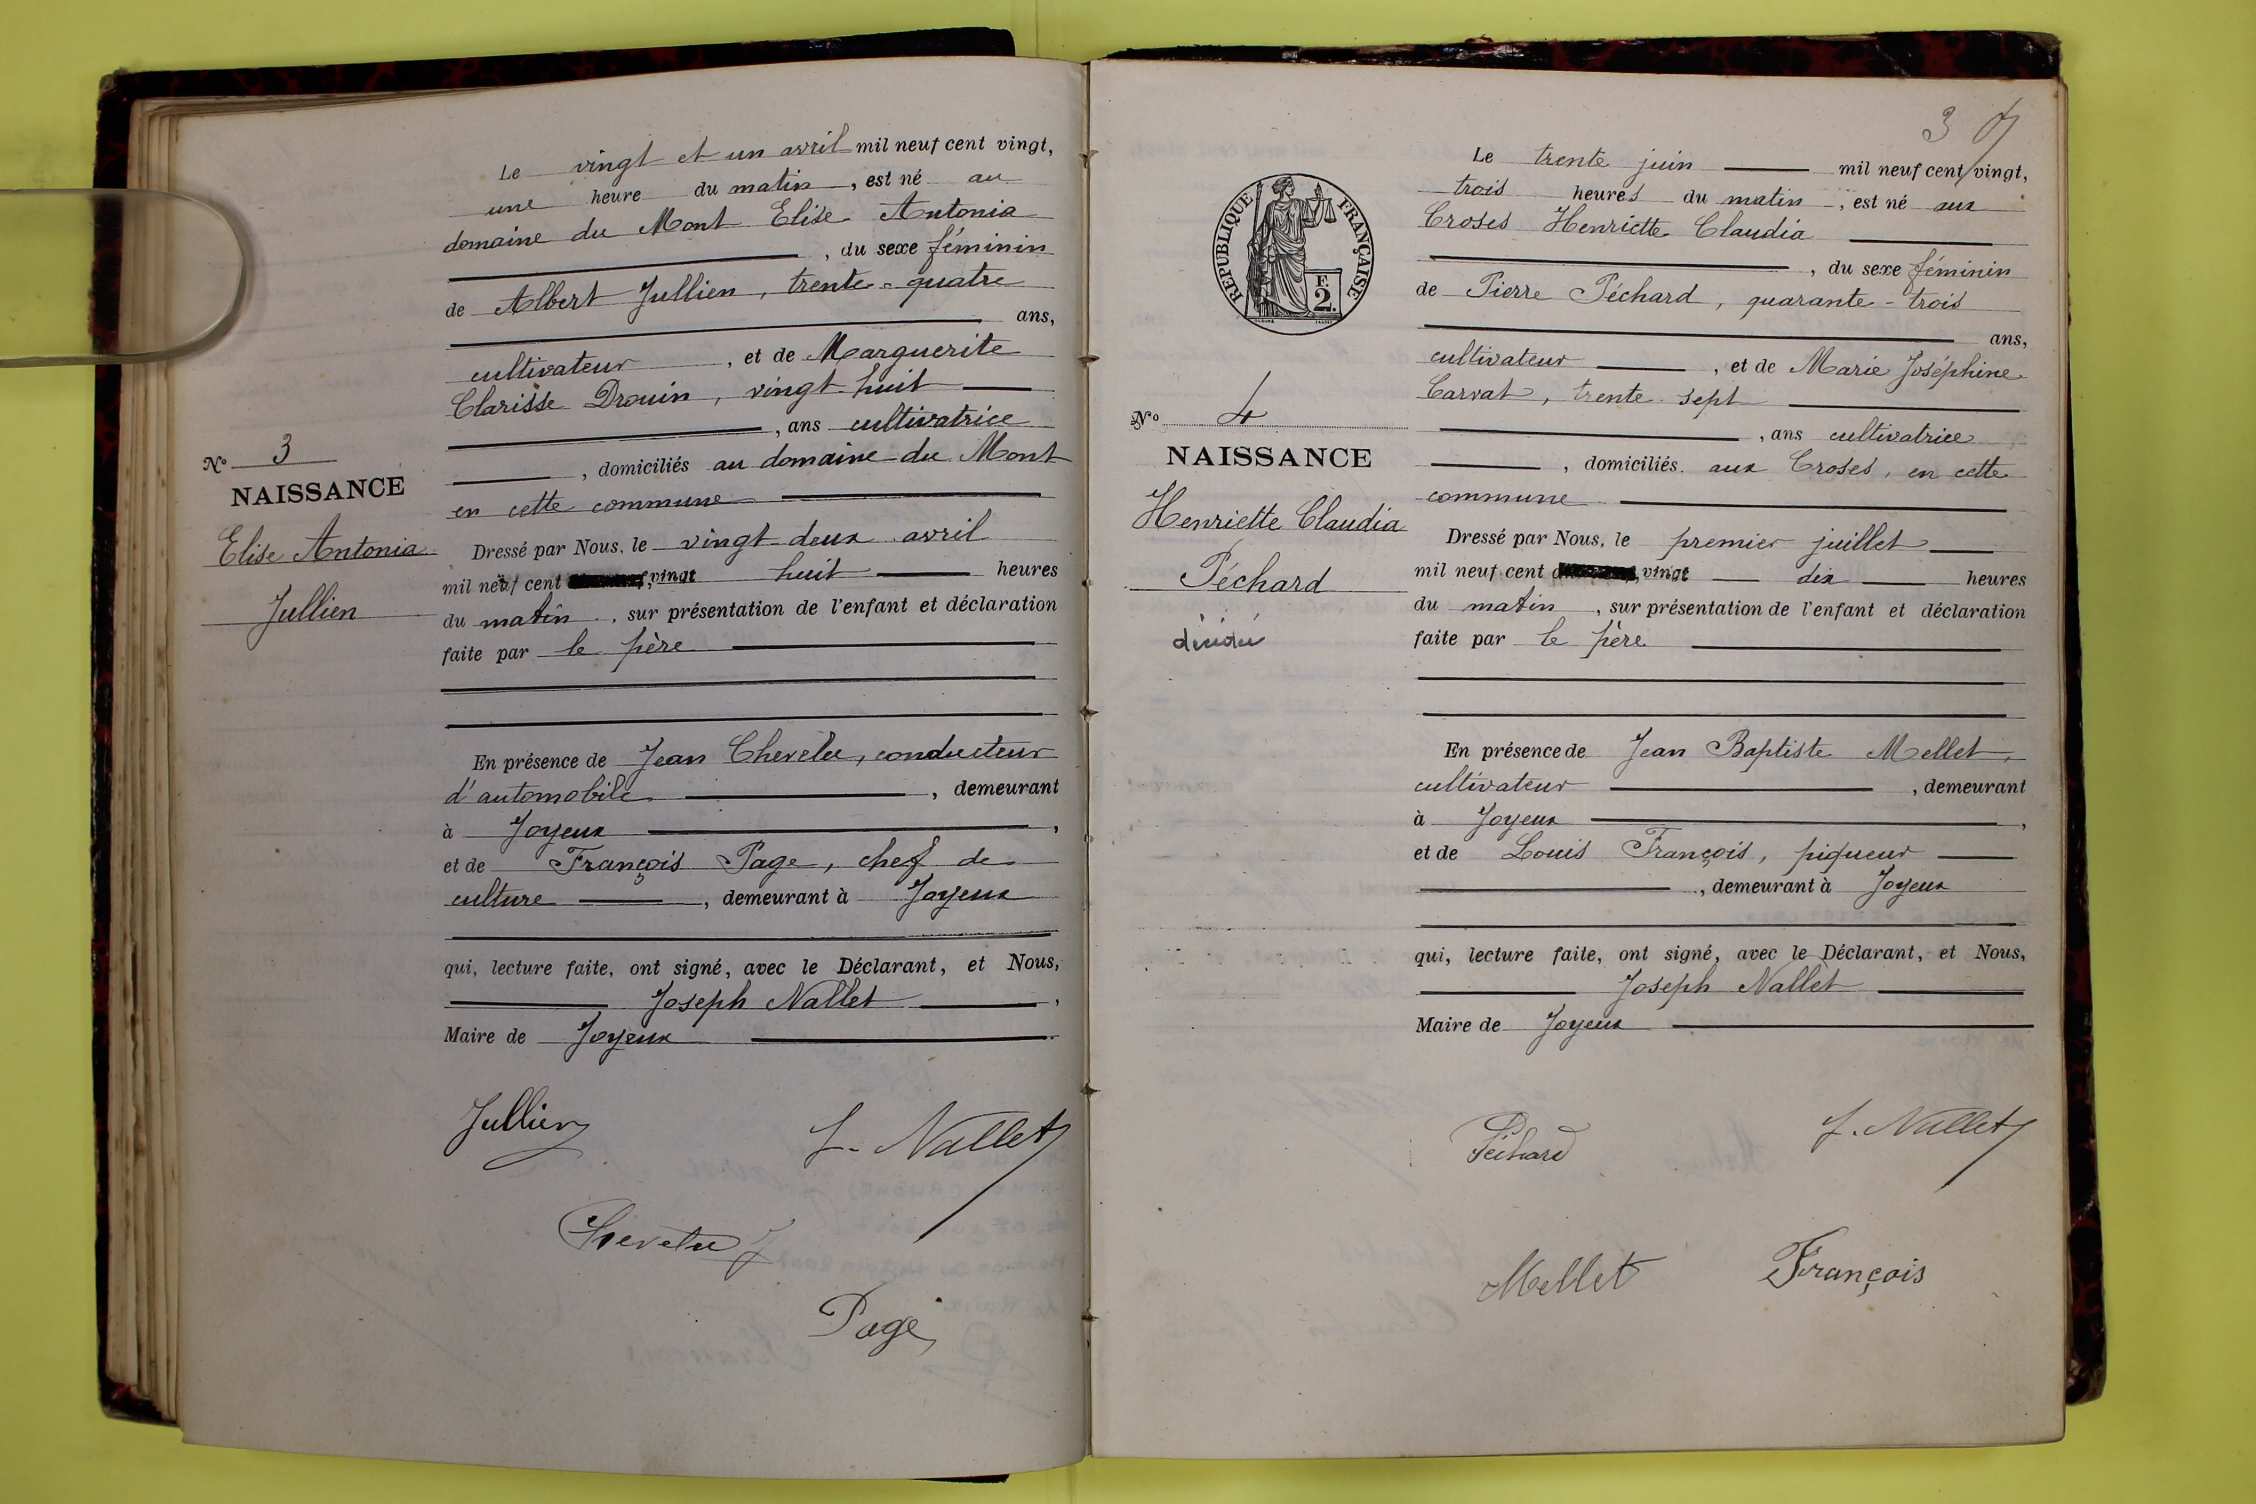 Le vingt et un avril mil neuf cent vingt,
une heure du matin, est né au
domaine du Mont Elise Antonia
, du sexe féminin
de Albert Jullien, trente-quatre
ans,
cultivateur, et de Marguerite
Clarisse Drouin, vingt-huit
, ans cultivatrice
, domiciliés au domaine du Mont
en cette commune
Nº 3
NAISSANCE
Elise Antonia
Jullien
Dressé par Nous, le vingt-deux avril
mil neuf cent vingt huit heures
du matin, sur présentation de l'enfant et déclaration
faite par le père
En présence de Jean Chevelu, conducteur
d'automobile, demeurant
à Joyeux,
et de François Page, chef de
culture, demeurant à Joyeux
qui, lecture faite, ont signé, avec le Déclarant, et Nous,
Joseph Nallet,
Maire de Joyeux
Jullien
J. Nallet
Chevelu J
Page
3
Le trente juin mil neuf cent vingt,
trois heures du matin, est né aux
Croses Henriette Claudia
, du sexe féminin
de Pierre Péchard, quarante-trois
ans,
cultivateur, et de Marie Joséphine
Carvat, trente-sept
, ans cultivatrice
, domiciliés aux Croses, en cette
commune
REPUBLIQUE FRANÇAISE
F.
2.
Nº 4
NAISSANCE
Henriette Claudia
Péchard
décédé
Dressé par Nous, le premier juillet
mil neuf cent vingt dix heures
du matin, sur présentation de l'enfant et déclaration
faite par le père
En présence de Jean Baptiste Mellet,
cultivateur, demeurant
à Joyeux,
et de Louis François, piqueur
, demeurant à Joyeux
qui, lecture faite, ont signé, avec le Déclarant, et Nous,
Joseph Nallet
Maire de Joyeux
Péchard
J. Nallet
Mellet
François